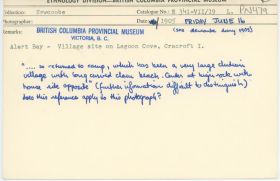 ETHNOLOGY DIVISION—BRITISH COLUMBIA PROVINCIAL MUSEUM
Collection: Newcombe Catalogue No.: E 141-VII/19 L. PN479
Date: 1905 FRIDAY JUNE 16
BRITISH COLUMBIA PROVINCIAL MUSEUM
VICTORIA, B.C.
(see diary 1905)
Alert Bay - Village site on Lagoon Cove, Cracroft I.
"..... so returned to camp, which has been a very large
village with long curved clam beach. Center at high rock with
house site opposite" (further information difficult to distinguish)
Does this reference apply to this photograph?